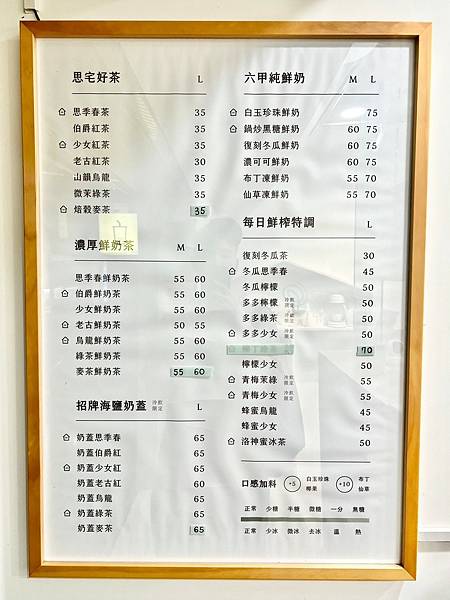 思宅好茶 L
思季春茶 35
伯爵紅茶 35
少女紅茶 35
老古紅茶 30
山韻烏龍 35
微茉綠茶 35
焙穀麥茶 35
濃厚鮮奶茶 M L
思季春鮮奶茶 55 60
伯爵鮮奶茶 55 60
少女鮮奶茶 55 60
老古鮮奶茶 50 55
烏龍鮮奶茶 55 60
綠茶鮮奶茶 55 60
麥茶鮮奶茶 55 60
招牌海鹽奶蓋 冷飲限定 L
奶蓋思季春 65
奶蓋伯爵紅 65
奶蓋少女紅 65
奶蓋老古紅 60
奶蓋烏龍 65
奶蓋綠茶 65
奶蓋麥茶 65
六甲純鮮奶 M L
白玉珍珠鮮奶 75
鍋炒黑糖鮮奶 60 75
復刻冬瓜鮮奶 60 75
濃可可鮮奶 60 75
布丁凍鮮奶 55 70
仙草凍鮮奶 55 70
每日鮮榨特調 L
復刻冬瓜茶 30
冬瓜思季春 45
冬瓜檸檬 50
多多檸檬 冷飲限定 50
多多綠茶 冷飲限定 50
多多少女 冷飲限定 50
70
檸檬少女 50
青梅茉綠 冷飲限定 55
青梅少女 冷飲限定 55
蜂蜜烏龍 55
蜂蜜少女 55
洛神蜜冰茶 50
口感加料 +5 白玉珍珠 椰果 +10 布丁 仙草
正常 少糖 半糖 微糖 一分 無糖
正常 少冰 微冰 去冰 溫 熱